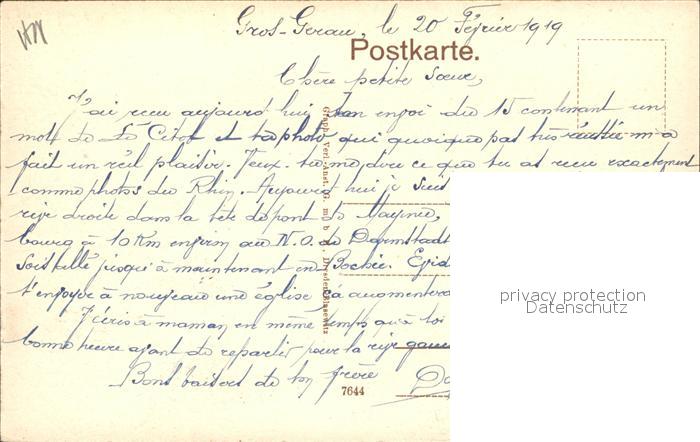 Gros-Gerau, le 20 Février 1919
Postkarte.
Chère petite Soeur,
J'ai reçu aujourd'hui ton envoi du 15 contenant un
mot de et ta photo qui quoique pas très réussie m'a
fait un réel plaisir. Veux-tu me dire ce que tu as reçu exactement
comme photos du Rhin. Aujourd'hui je suis
rive droite dans la tête de pont de Mayence,
bourg à 10 Km environ au N.O. de Darmstadt
sois jusqu'à maintenant en Bochie.
t'envoyer à nouveau une église ça augmentera
J'écris à maman en même temps qu'à toi
bonne heure avant de repartir pour la rive gauche
Bons baisers de ton frère
Graph. Verl.-Anst. G. m. b. H., Dresden-Blasewitz
7644
privacy protection
Datenschutz